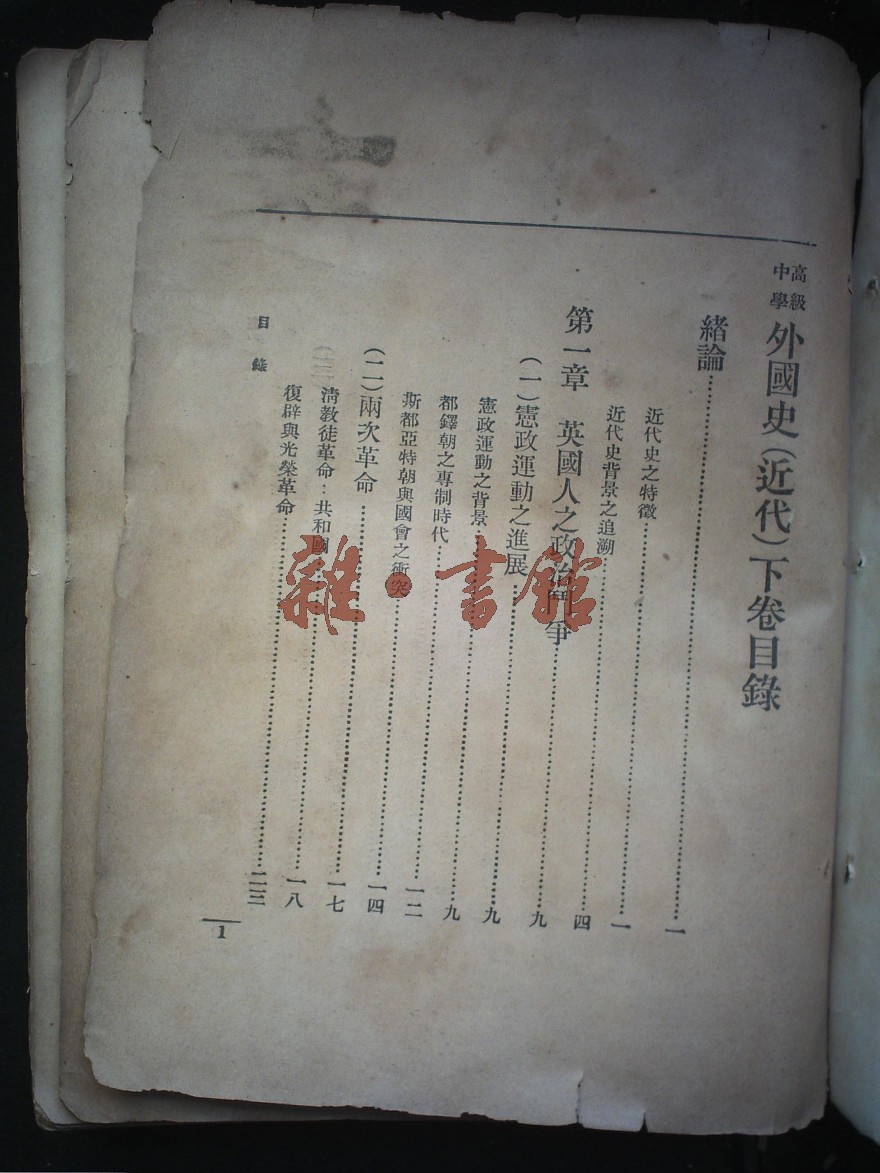 高級中學 外國史（近代）下卷目錄
緒論……一
近代史之特徵……一
近代史背景之追溯……四
第一章 英國人之政治鬥爭……九
（一）憲政運動之進展……九
憲政運動之背景……九
都鐸朝之專制時代……一二
斯都亞特朝與國會之衝突……一四
（二）兩次革命……一七
清教徒革命：共和國……一八
復辟與光榮革命……二三
目錄
1
雜・書館